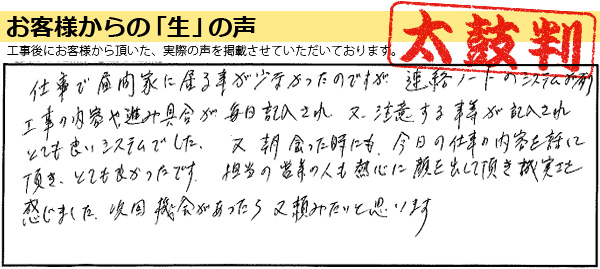 お客様からの「生」の声
工事後にお客様から頂いた、実際の声を掲載させていただいております。
太鼓判
仕事で昼間家に居る事が少なかったのですが 連絡ノートのシステムが有り
工事の内容や進み具合が毎日記入され 又 注意する事等が記入され
とても良いシステムでした。 又 朝会った時にも、今日の仕事の内容を話して
頂き、とても良かったです。 担当の営業の人も熱心に顔を出して頂き誠実さを
感じました。次回機会があったら又頼みたいと思います